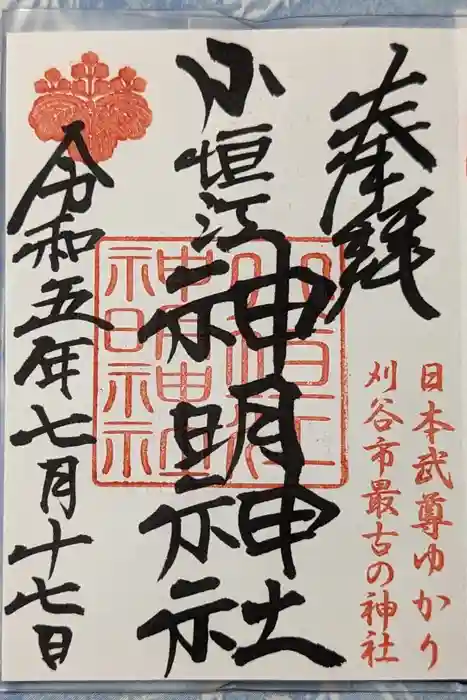 奉拝
日本武尊ゆかり
刈谷市最古の神社
小垣江神明神社
令和五年七月十七日